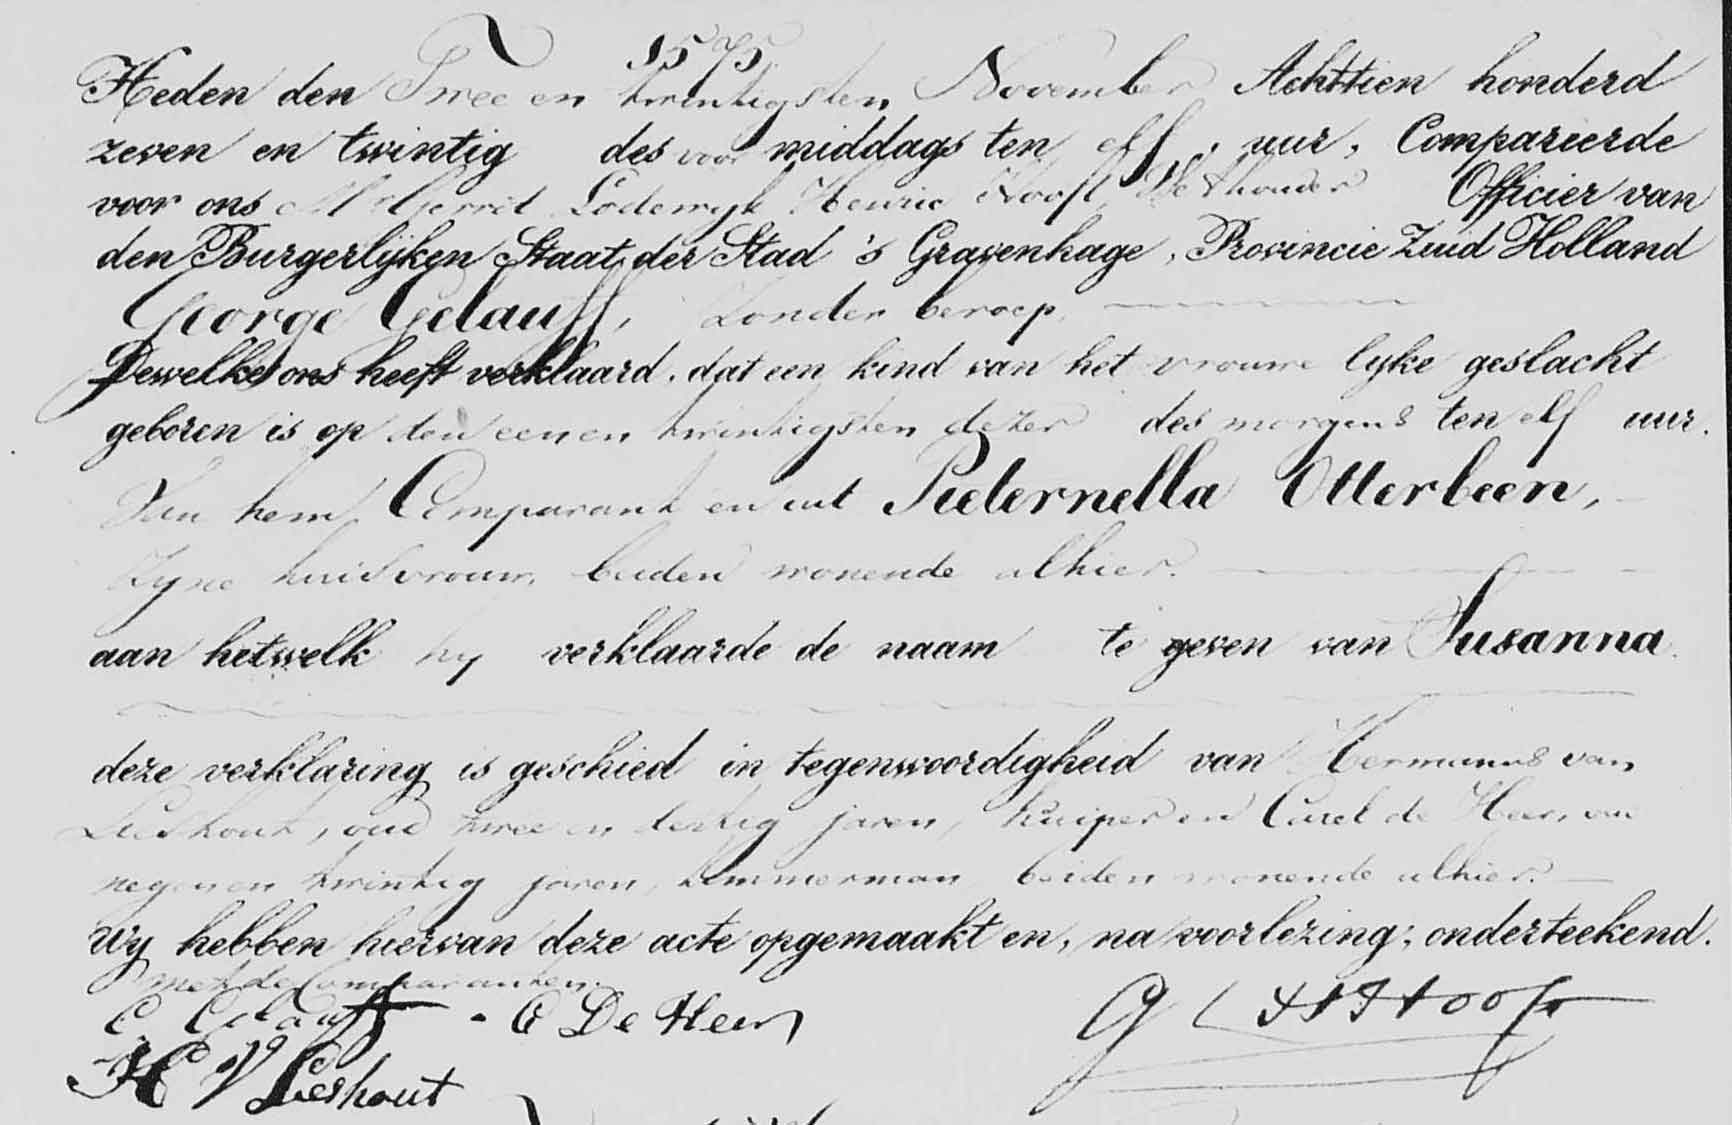 1575.
Heden den Twee en twintigsten November Achttien honderd
zeven en twintig des voor middags ten elf uur, Compareerde
voor ons Mr Gerrit Lodewyk Henric Hooft, Wethouder Officier van
den Burgerlijken Staat der Stad 's Gravenhage, Provincie Zuid Holland
George Gelauff, Zonder beroep,
Dewelke ons heeft verklaard, dat een kind van het vrouwe lyke geslacht
geboren is op den een en twintigsten dezer des morgens ten elf uur.
Van hem Comparant en uit Pieternella Otterbeen,
Zyne huisvrouw, beiden wonende alhier.
aan hetwelk hy verklaarde de naam te geven van Susanna.
deze verklaring is geschied in tegenwoordigheid van Hermanus van
Lieshout, oud twee en dertig jaren, kuiper en Carel de Heer, oud
negen en twintig jaren, timmerman beiden wonende alhier.
Wy hebben hiervan deze acte opgemaakt en, na voorlezing, onderteekend.
met de Comparanten.
G Gelauff C De Heer G L H Hooft
H V Lieshout